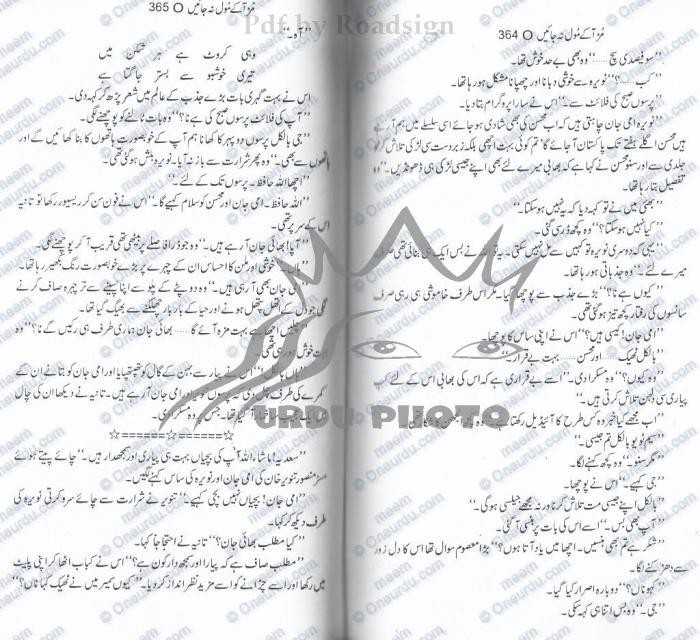 مُڑ آ کے مُول نہ جائیں O 364
"سو فیصدی سچ ......" وہ بھی بے حد خوش تھا۔
"کب......؟" نویرہ سے خوشی دبانا اور چھپانا مشکل ہو رہا تھا۔
"پرسوں صبح کی فلائٹ سے۔" اس نے سارا پروگرام بتا دیا۔
"نویرہ امی جان چاہتی ہیں کہ اب محسن کی بھی شادی ہو جائے اسی سلسلے میں ہم آ رہے
ہیں محسن اگلے ہفتے تک پاکستان آ جائے گا تم کوئی بہت اچھی بلکہ زبردست سی لڑکی تلاش کرو
جلدی سے اور سنو محسن نے کہا ہے کہ بھابی میرے لئے بھی اپنے جیسی لڑکی ہی ڈھونڈیں۔" وہ
تفصیل بتا رہا تھا۔
"بھئی میں نے تو کہہ دیا کہ یہ نہیں ہو سکتا۔"
"کیا نہیں ہو سکتا؟" وہ کچھ ڈر سی گئی۔
"یہی کہ دوسری نویرہ تو کہیں سے مل نہیں سکتی۔ یہ تو اللہ نے بس ایک ہی بنائی تھی صرف
میرے لئے۔" وہ جذباتی ہو رہا تھا۔
"کیوں ہے نا؟" بڑے جذب سے پوچھا گیا۔ مگر اس طرف خاموشی ہی رہی صرف
سانسوں کی رفتار کچھ تیز ہو گئی تھی۔
"امی جان! کیسی ہیں؟" اس نے اپنی ساس کا پوچھا۔
"بالکل ٹھیک ...... اور محسن ...... بہت بے قرار۔"
"وہ کیوں؟" وہ مسکرا دی۔ "اسے بے قراری ہے کہ اس کی بھابی اس کے لئے کب
پیاری سی دلہن تلاش کرتی ہیں۔"
"اب مجھے کیا خبر وہ کس طرح کا آئیڈیل رکھتا ہے۔" وہ کچھ
"سیم ٹو یو بالکل تم جیسی۔"
"مگر سنو۔" وہ کچھ کہنے لگا۔
"جی کہیے۔" اس نے پوچھا۔
"بالکل اپنے جیسی مت تلاش کرنا ورنہ مجھے جیلسی ہو گی۔"
"آپ بھی بس۔" اسے اس کی بات پر ہنسی آ گئی۔
"شکر ہے تم بھی ہنسیں۔ اچھا میں یاد آتا ہوں؟" بڑا معصوم سوال تھا اس کا دل زور
سے دھڑکنے لگا۔
"کہو ناں؟" دوبارہ اصرار کیا گیا۔
"جی۔" وہ بس اتنا ہی کہہ سکی۔
مُڑ آ کے مُول نہ جائیں O 365
"آہ۔"
وہی کروٹ ہے ہر شکن میں
تیری خوشبو سے بستر جاگتا ہے
اس نے بہت گہری بات بڑے جذب کے عالم میں شعر پڑھ کر کہہ دی۔
"آپ کی فلائٹ پرسوں صبح کی ہے نا؟" وہ بات ٹالنے کو پوچھنے لگی۔
"جی بالکل پرسوں دوپہر کا کھانا ہم آپ کے خوبصورت ہاتھوں کا بنا کھائیں گے اور
ہاتھوں سے بھی۔" وہ پھر شرارت سے باز نہ آیا۔ نویرہ بلش ہو گئی تھی۔
"اچھا اللہ حافظ۔ پرسوں تک کے لئے۔"
"اللہ حافظ۔ امی جان اور محسن کو سلام کہیے گا۔" اس نے فون سن کر ریسیور رکھا تو تانیہ
اس کے سر پر تھی۔
"آپا! بھائی جان آ رہے ہیں۔" وہ جو ذرا فاصلے پر بیٹھی تھی قریب آ کر پوچھنے لگی۔
"ہاں۔" خوشی اور ملن کا احساس ان کے چہرے پر بڑے خوبصورت رنگ بکھیر رہا تھا۔
"امی جان بھی آ رہی ہیں۔" وہ دوپٹے کے پلو سے اپنا پسینے سے تر چہرہ صاف کرنے
لگی جو دل کے اتھل پتھل ہونے اور حیا کے بار بار چھلکنے سے بھیگ گیا تھا۔
"چلیں اچھا ہے بہت مزہ آئے گا...... بھائی جان ہماری طرف ہی رکیں گے نا؟" وہ
بہت خوش ہو رہی تھی۔
"ہاں بالکل!" اس نے پیار سے بہن کے گال کو تھپتھپایا اور امی جان کو بتانے ان کے
کمرے کی طرف چل دی کہ پرسوں امی جان آ رہے ہیں۔ تانیہ نے دیکھا ان کی چال
وہ مسکرا دی۔
☆======☆======☆
"سعدیہ! ماشاءاللہ آپ کی بچیاں بہت ہی پیاری اور سمجھدار ہیں۔" چائے پیتے ہوئے
مسز منصور تنویر خان کی امی جان اور نویرہ کی ساس کہنے لگیں۔
"امی جان! بچیاں نہیں بچی کہیے۔" تنویر نے شرارت سے چائے سرو کرتی نویرہ کی
طرف دیکھ کر کہا۔
"کیا مطلب بھائی جان؟" تانیہ نے احتجاجاً کہا۔
"مطلب صاف ہے کہ پیارا اور سمجھدار کون ہے؟" اس نے کباب اٹھا کر اپنی پلیٹ
میں رکھا اور اسے چڑانے کو اسے مزید نظر انداز کر دیا۔ "کیوں سمیر میں نے ٹھیک کہا ناں؟"
Pdf by Roadsign
URDU PHOTO
© Oneurdu.com